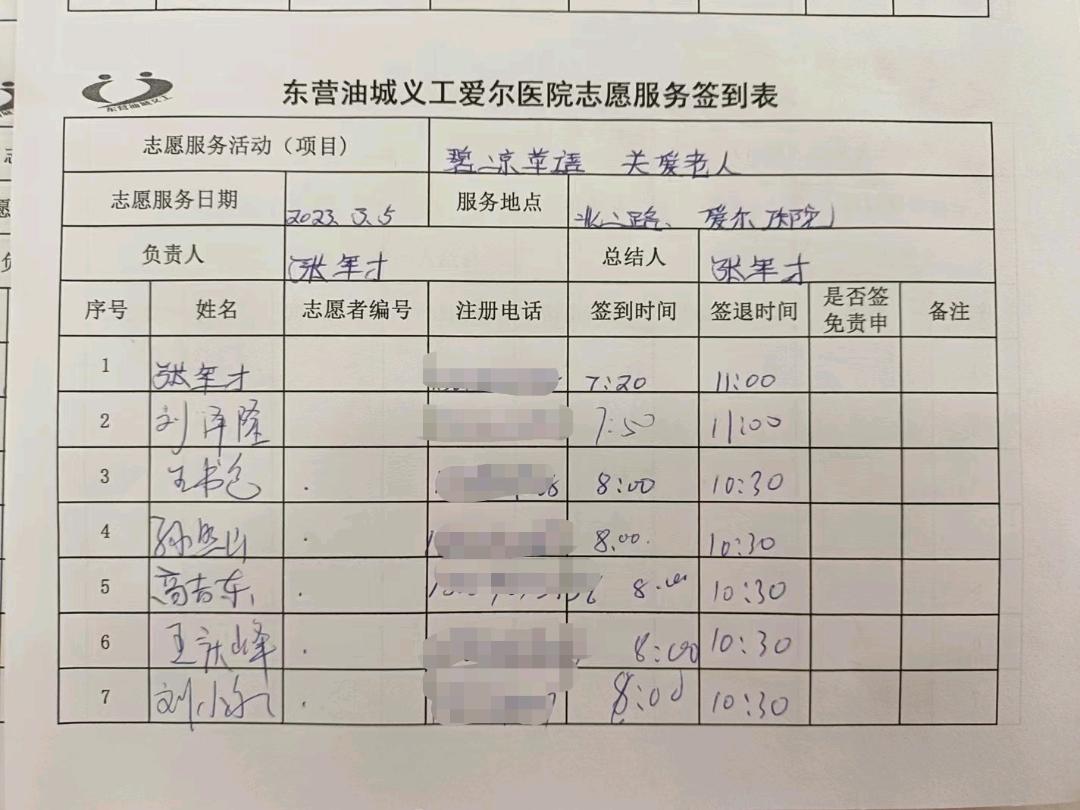 东营油城义工
东营油城义工爱尔医院志愿服务签到表
志愿服务活动（项目） 关爱老人
志愿服务日期 2023.3.5 服务地点 北二路、爱尔医院
负责人 张军才 总结人 张军才
序号 姓名 志愿者编号 注册电话 签到时间 签退时间 是否签免责申 备注
1 张军才 7:20 11:00
2 刘泽隆 7:50 11:00
3 王书包 8:00 10:30
4 8:00 10:30
5 高吉东 8:00 10:30
6 王庆峰 8:00 10:30
7 8:00 10:30